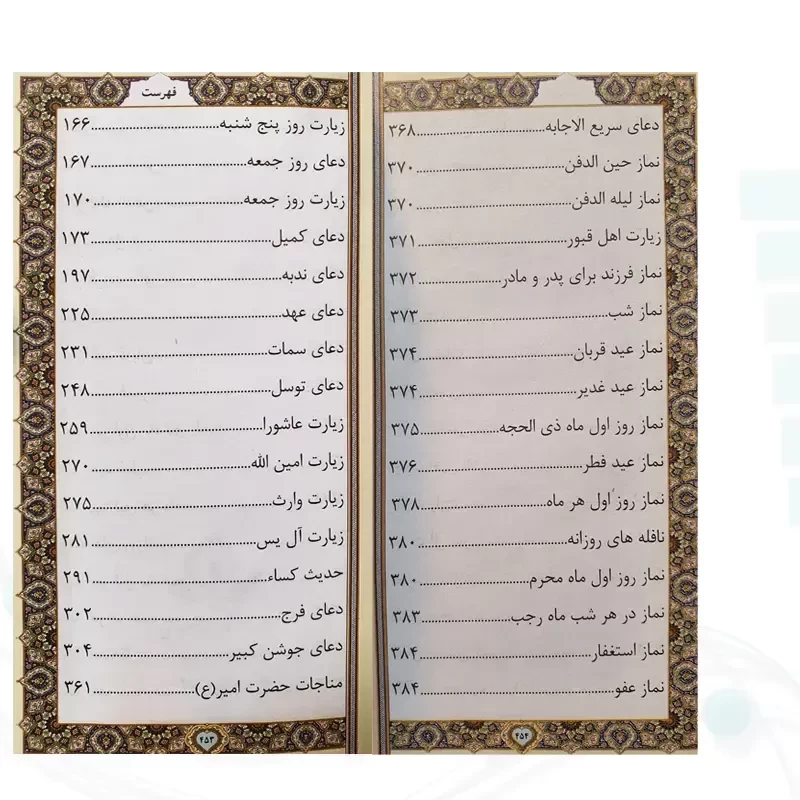 فهرست
زیارت روز پنج شنبه........................۱۶۶
دعای روز جمعه........................۱۶۷
زیارت روز جمعه........................۱۷۰
دعای کمیل........................۱۷۳
دعای ندبه........................۱۹۷
دعای عهد........................۲۲۵
دعای سمات........................۲۳۱
دعای توسل........................۲۴۸
زیارت عاشورا........................۲۵۹
زیارت امین الله........................۲۷۰
زیارت وارث........................۲۷۵
زیارت آل یس........................۲۸۱
حدیث کساء........................۲۹۱
دعای فرج........................۳۰۲
دعای جوشن کبیر........................۳۰۴
مناجات حضرت امیر(ع)........................۳۶۱
۴۵۳
دعای سریع الاجابه........................۳۶۸
نماز حین الدفن........................۳۷۰
نماز لیله الدفن........................۳۷۰
زیارت اهل قبور........................۳۷۱
نماز فرزند برای پدر و مادر........................۳۷۲
نماز شب........................۳۷۳
نماز عید قربان........................۳۷۴
نماز عید غدیر........................۳۷۴
نماز روز اول ماه ذی الحجه........................۳۷۵
نماز عید فطر........................۳۷۶
نماز روز اول هر ماه........................۳۷۸
نافله های روزانه........................۳۸۰
نماز روز اول ماه محرم........................۳۸۰
نماز در هر شب ماه رجب........................۳۸۳
نماز استغفار........................۳۸۴
نماز عفو........................۳۸۴
۴۵۴